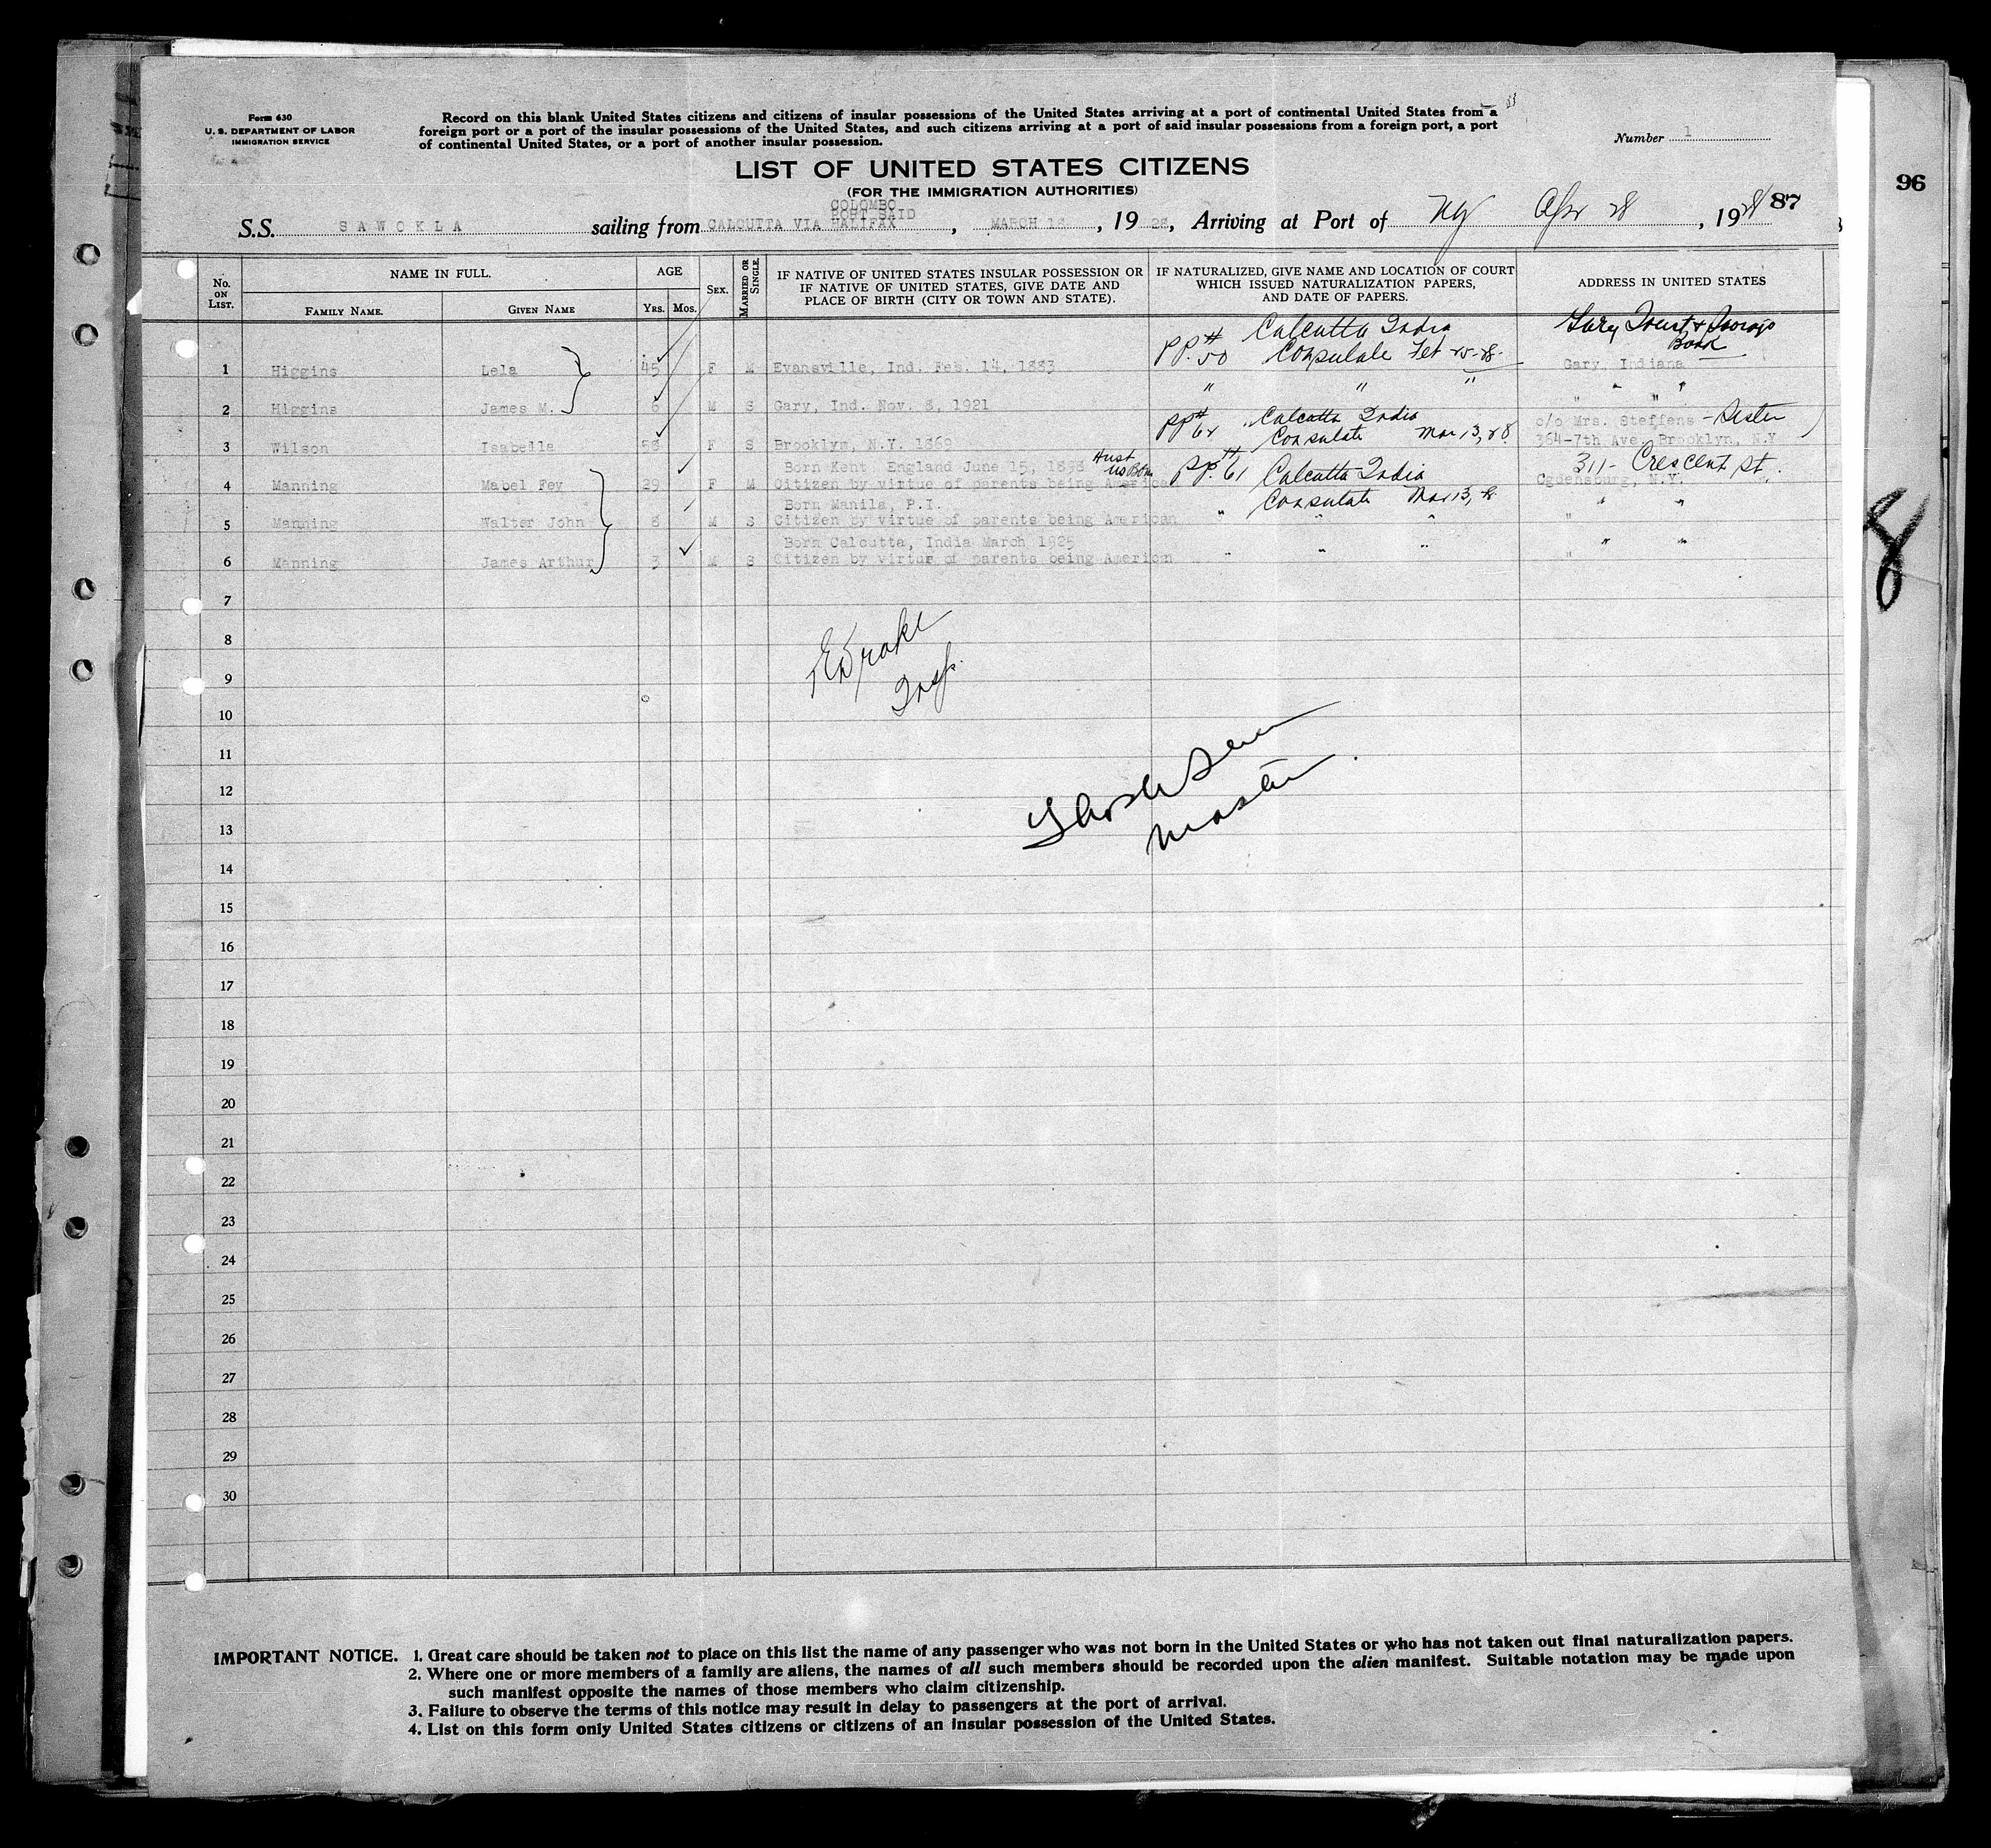 Form 630
U. S. DEPARTMENT OF LABOR
IMMIGRATION SERVICE
Record on this blank United States citizens and citizens of insular possessions of the United States arriving at a port of continental United States from a
foreign port or a port of the insular possessions of the United States, and such citizens arriving at a port of said insular possessions from a foreign port, a port
of continental United States, or a port of another insular possession.
Number 1
LIST OF UNITED STATES CITIZENS
(FOR THE IMMIGRATION AUTHORITIES)
96
87
COLOMBO
PORT SAID
S.S. SAWOKLA sailing from CALCUTTA VIA HALIFAX, MARCH 16, 1928, Arriving at Port of NY Apr 28, 1928
No. ON LIST.
NAME IN FULL.
FAMILY NAME. GIVEN NAME
AGE
YRS. MOS.
SEX.
MARRIED OR SINGLE.
IF NATIVE OF UNITED STATES INSULAR POSSESSION OR
IF NATIVE OF UNITED STATES, GIVE DATE AND
PLACE OF BIRTH (CITY OR TOWN AND STATE).
IF NATURALIZED, GIVE NAME AND LOCATION OF COURT
WHICH ISSUED NATURALIZATION PAPERS,
AND DATE OF PAPERS.
ADDRESS IN UNITED STATES
Calcutta India Gary Trust & Savings
PP.# 50 Consulate Feb 25-28 Bank
1 Higgins Lela 45 F M Evansville, Ind. Feb. 14, 1883 Gary, Indiana
" " " " " "
2 Higgins James M. 6 M S Gary, Ind. Nov. 8, 1921
PP# Calcutta India c/o Mrs. Steffens - Sister
Consulate Mar 13, 28
3 Wilson Isabella 58 F S Brooklyn, N.Y. 1869 364-7th Ave. Brooklyn, N.Y
Born Kent, England June 15, 1898 Husb US Born PP.# 61 Calcutta India 311- Crescent St.
4 Manning Mabel Fey 29 F M Citizen by virtue of parents being America Ogdensburg, N.Y.
Born Manila, P.I. Consulate Mar 13, 28 " "
5 Manning Walter John 8 M S Citizen by virtue of parents being American " " " "
Born Calcutta, India March 1925 " "
6 Manning James Arthur 3 M S Citizen by virtue of parents being American " " " "
7
8
8
EDrake
9
Insp.
10
11
12
13
Master
14
15
16
17
18
19
20
21
22
23
24
25
26
27
28
29
30
IMPORTANT NOTICE. 1. Great care should be taken not to place on this list the name of any passenger who was not born in the United States or who has not taken out final naturalization papers.
2. Where one or more members of a family are aliens, the names of all such members should be recorded upon the alien manifest. Suitable notation may be made upon
such manifest opposite the names of those members who claim citizenship.
3. Failure to observe the terms of this notice may result in delay to passengers at the port of arrival.
4. List on this form only United States citizens or citizens of an insular possession of the United States.